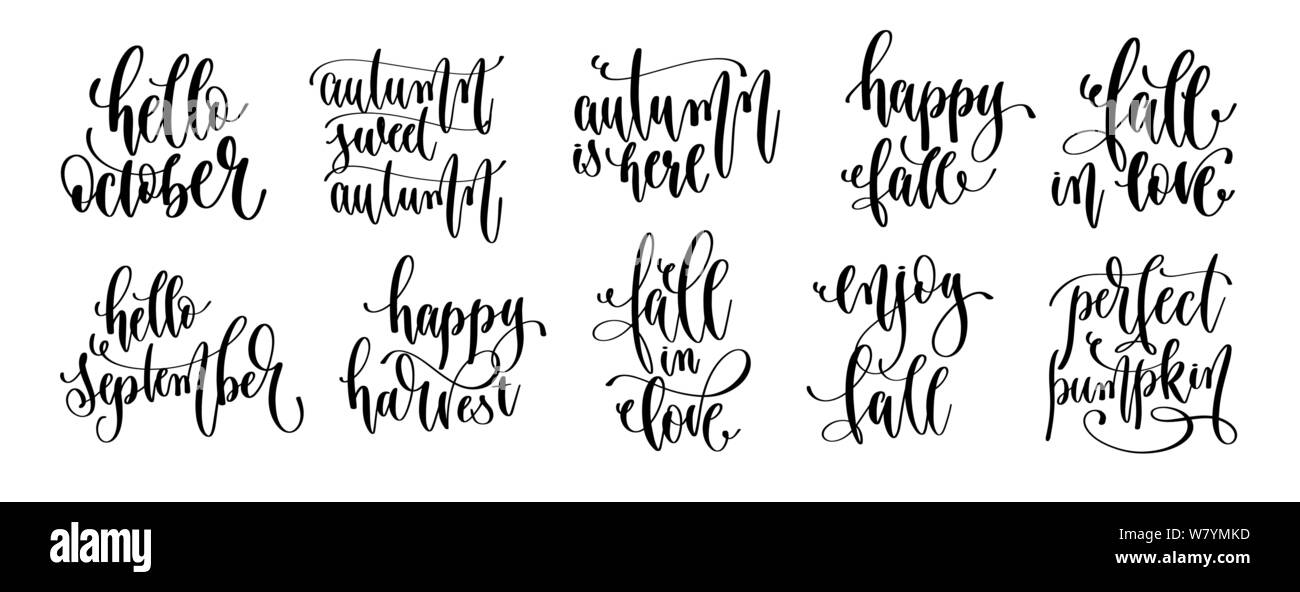 hello
october
autumn
sweet
autumn
autumn
is here
happy
fall
fall
in love
hello
september
happy
harvest
fall
in
love
enjoy
fall
perfect
pumpkin
alamy
Image ID: W7YMKD
www.alamy.com